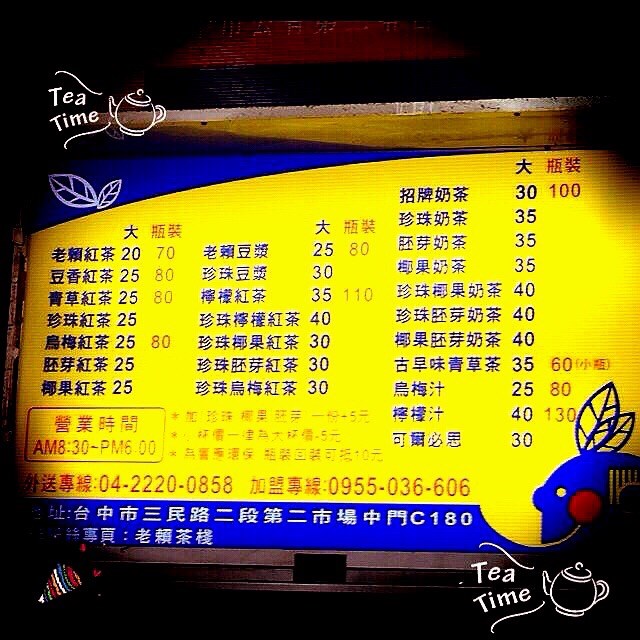 Tea
Time
大 瓶裝
老賴紅茶 20 70
豆香紅茶 25 80
青草紅茶 25 80
珍珠紅茶 25
烏梅紅茶 25 80
胚芽紅茶 25
椰果紅茶 25
大 瓶裝
老賴豆漿 25 80
珍珠豆漿 30
檸檬紅茶 35 110
珍珠檸檬紅茶 40
珍珠椰果紅茶 30
珍珠胚芽紅茶 30
珍珠烏梅紅茶 30
大 瓶裝
招牌奶茶 30 100
珍珠奶茶 35
胚芽奶茶 35
椰果奶茶 35
珍珠椰果奶茶 40
珍珠胚芽奶茶 40
椰果胚芽奶茶 40
古早味青草茶 35 60(小瓶)
烏梅汁 25 80
檸檬汁 40 130
可爾必思 30
營業時間
AM8:30~PM6:00
*加 珍珠 椰果 胚芽 一份+5元
*小杯價一律為大杯價-5元
*為響應環保 瓶裝回裝可抵10元
外送專線:04-2220-0858 加盟專線:0955-036-606
地址:台中市三民路二段第二市場中門C180
粉絲專頁:老賴茶棧
Tea
Time